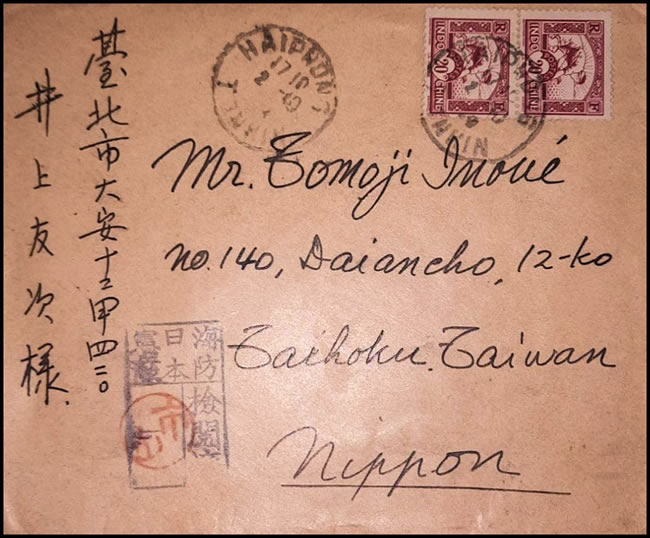 臺北市大安十二甲
井上友次様
HAIPHONG
17 10
INDO
CHINE
20
R
F
INDO
CHINE
20
R
F
Mr. Tomoji Inoué
no. 140, Daiancho, 12-ko
Taihoku. Taiwan
Nippon
海防
日本
檢閱